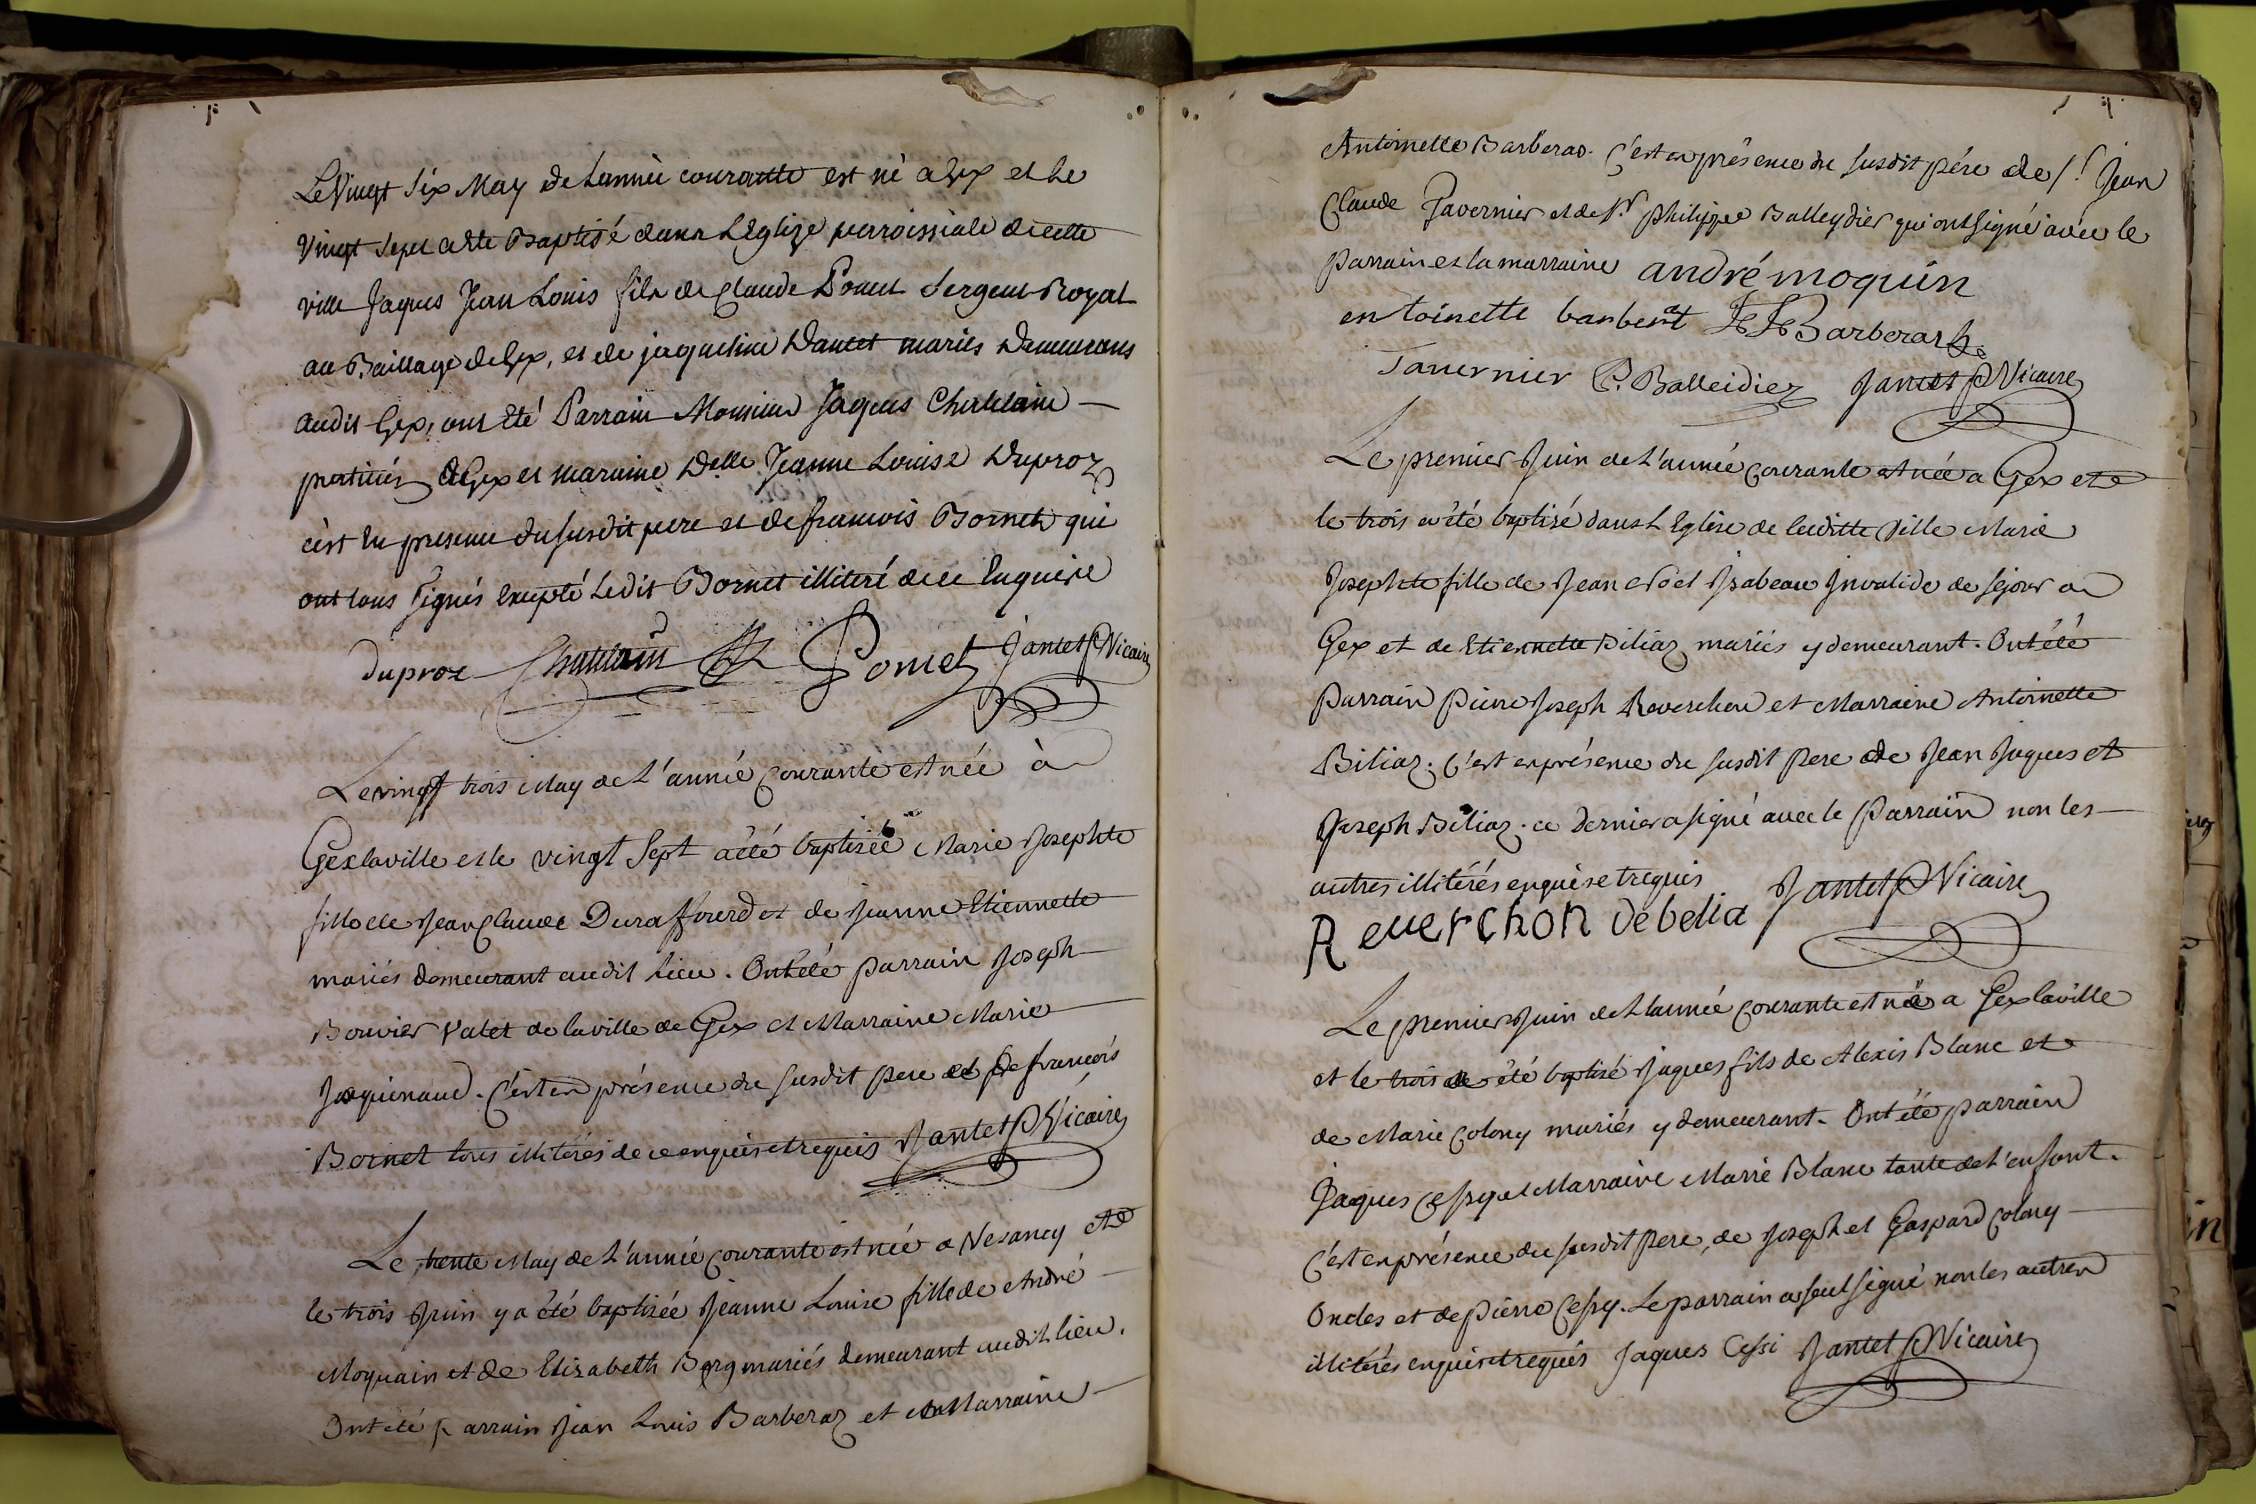 Le Vingt Six May de Lannée courante est né a Gex et le
Vingt Sept a ete Baptisé dans L'Eglize parroissiale de cette
ville Jaques Jean Louis fils de Claude Pomet Sergent Royal
au Baillage de Gex, et de jaqueline Dantet mariés Demeurans
audit Gex, ont Eté Parrain Monsieur Jaques Chatelain
praticien a Gex et maraine Delle Jeanne Louise Duproz
c'est En presence du susdit pere et de francois Bornet qui
ont tous signés Excepté Ledit Bornet illiteré de ce Enquise
duproz Chatelain Pomet Jantet P Vicaire
Le vingt trois May de L'année Courante est née à
Gex la ville et le vingt Sept a été baptisée Marie Josephte
fille de Jean Claude Duraffourd et de Jeanne Etiennette
mariés demeurant audit Lieu. Ont été parrain Joseph
Bouvier Valet de la ville de Gex et Marraine Marie
Joquinaud. C'est en présence du susdit Pere et de francois
Bornet tous illiterés de ce enquis et requis Jantet P Vicaire
Le trente May de L'année Courante est née a Vesancy et
le trois Juin y a été baptisée Jeanne Louise fille de André
Moquain et de Elizabeth Borg mariés demeurant audit lieu.
Ont été parrain Jean Louis Barberaz et Marraine
Antoinette Barberas. C'est en présence du susdit pére de Sr. Jean
Claude Tavernier et de Sr. Philippe Balleydier qui ont signé avec le
Parrain et la marraine andré moquin
entoinette barberat JL Barberaz
Tavernier P. Balleidier Jantet P Vicaire
Le premier Juin de L'année Courante est née a Gex et
le trois a été baptisé dans L'Eglise de laditte Ville Marie
Josephte fille de Jean Noël Isabeau Invalide de séjour a
Gex et de Etiennette Biliaz mariés y demeurant. Ont été
Parrain Pierre Joseph Reverchon et Marraine Antoinette
Biliaz. C'est en présence du susdit Pere de Jean Jaques et
Joseph Biliaz. ce dernier a signé avec le Parrain non les
autres illitérés enquis et requis
Reuerchon debelia Jantet P Vicaire
Le premier Juin de L'année Courante est née a Gex la ville
et le trois a été baptisé Jaques fils de Alexis Blanc et
de Marie Colony mariés y demeurant. Ont été parrain
Jaques Cessy et Marraine Marie Blanc tante de L'enfant.
C'est en présence du susdit Pere, de Joseph et Gaspard Colony
Oncles et de Pierre Cessy. Le parrain a seul signé non les autres
illitérés enquis et requis Jaques Cessi Jantet P Vicaire